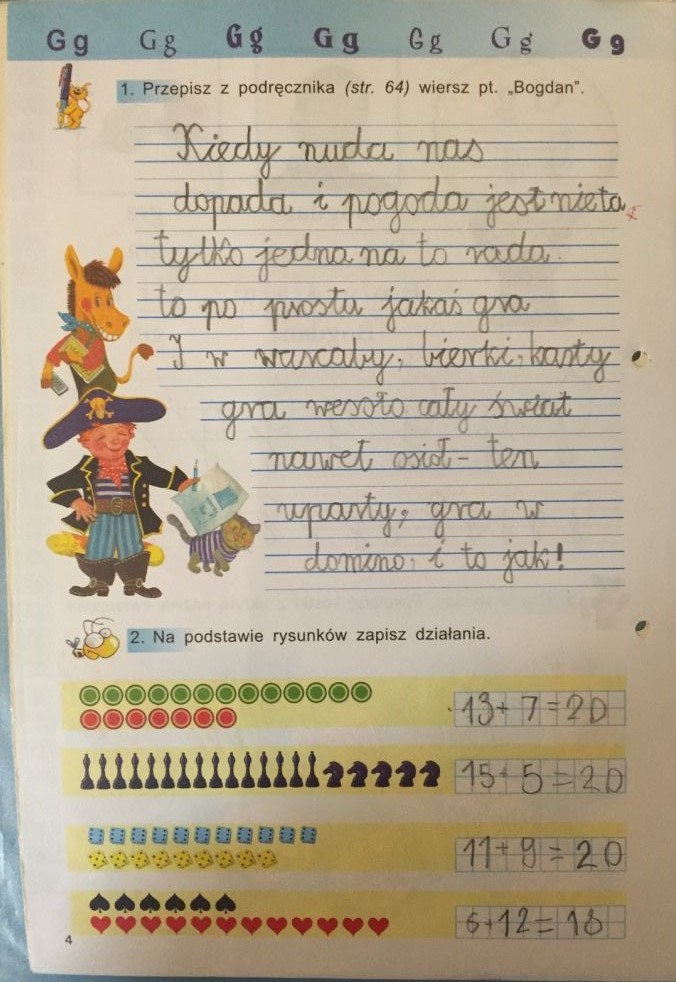 G g G g G g G g G g G g G g
1. Przepisz z podręcznika (str. 64) wiersz pt. „Bogdan”.
Kiedy nuda nas
dopada i pogoda jest nie ta
tylko jedna na to rada.
to po prostu jakaś gra
I w warcaby, bierki, karty
gra wesoło cały świat
nawet osioł - ten
uparty, gra w
domino, i to jak!
2. Na podstawie rysunków zapisz działania.
13 + 7 = 20
15 + 5 = 20
11 + 9 = 20
6 + 12 = 18
4